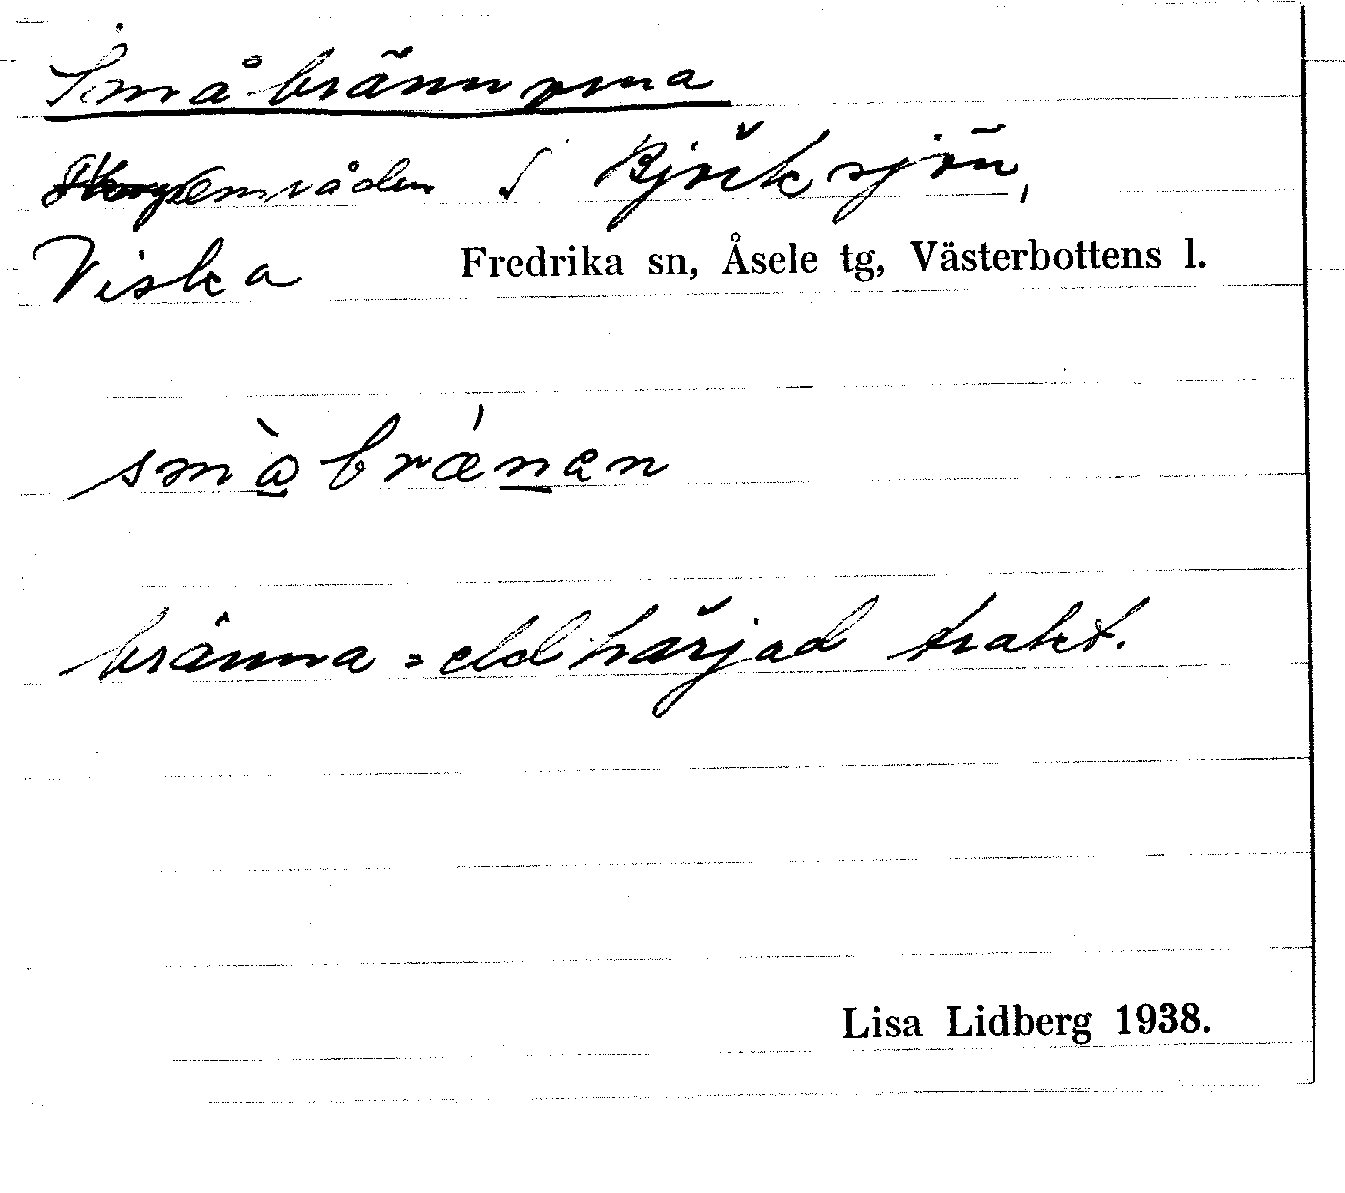 Småbrännorna
områden S Björksjön,
Viska Fredrika sn, Åsele tg, Västerbottens l.
smàbrǽnan
bränna = eldhärjad trakt.
Lisa Lidberg 1938.